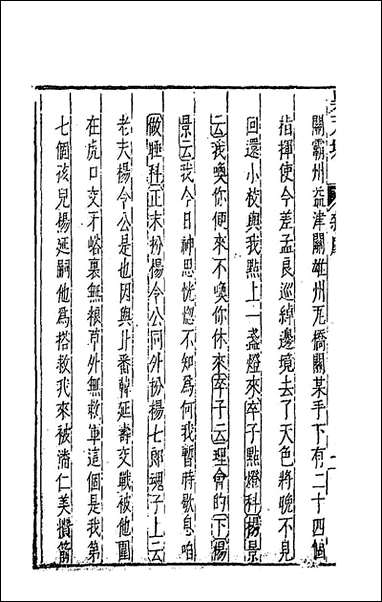 關霸州益津關雄州瓦橋關某手下有二十四個
指揮使今差孟良巡綽邊境去了天色將晚不見
回還小校與我點上一盞燈來卒子點燈科楊景
云我喚你便來不喚你休來卒子云理會的下楊
景云我今日神思恍惚不知爲何我暫時歇息咱
做睡科正末扮楊令公同外扮楊七郎魂子上云
老夫楊令公是也因與北番韓延壽交戰被他圍
在虎口交牙峪裏無根草外無救軍這個是我第
七個孩兒楊延嗣他爲搭救我來被潘仁美攢箭